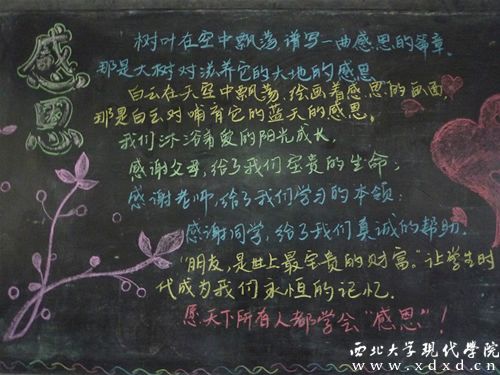 感恩
树叶在空中飘荡谱写一曲感恩的篇章.
那是大树对滋养它的大地的感恩
白云在天空中飘荡.绘画着感恩的画面.
那是白云对哺育它的蓝天的感恩.
我们沐浴着爱的阳光成长,
感谢父母,给了我们宝贵的生命;
感谢老师,给了我们学习的本领;
感谢同学,给了我们真诚的帮助.
"朋友,是世上最宝贵的财富."让学生时
代成为我们永恒的记忆.
愿天下所有人都学会"感恩"!
西北大学现代学院
www.xdxd.cn